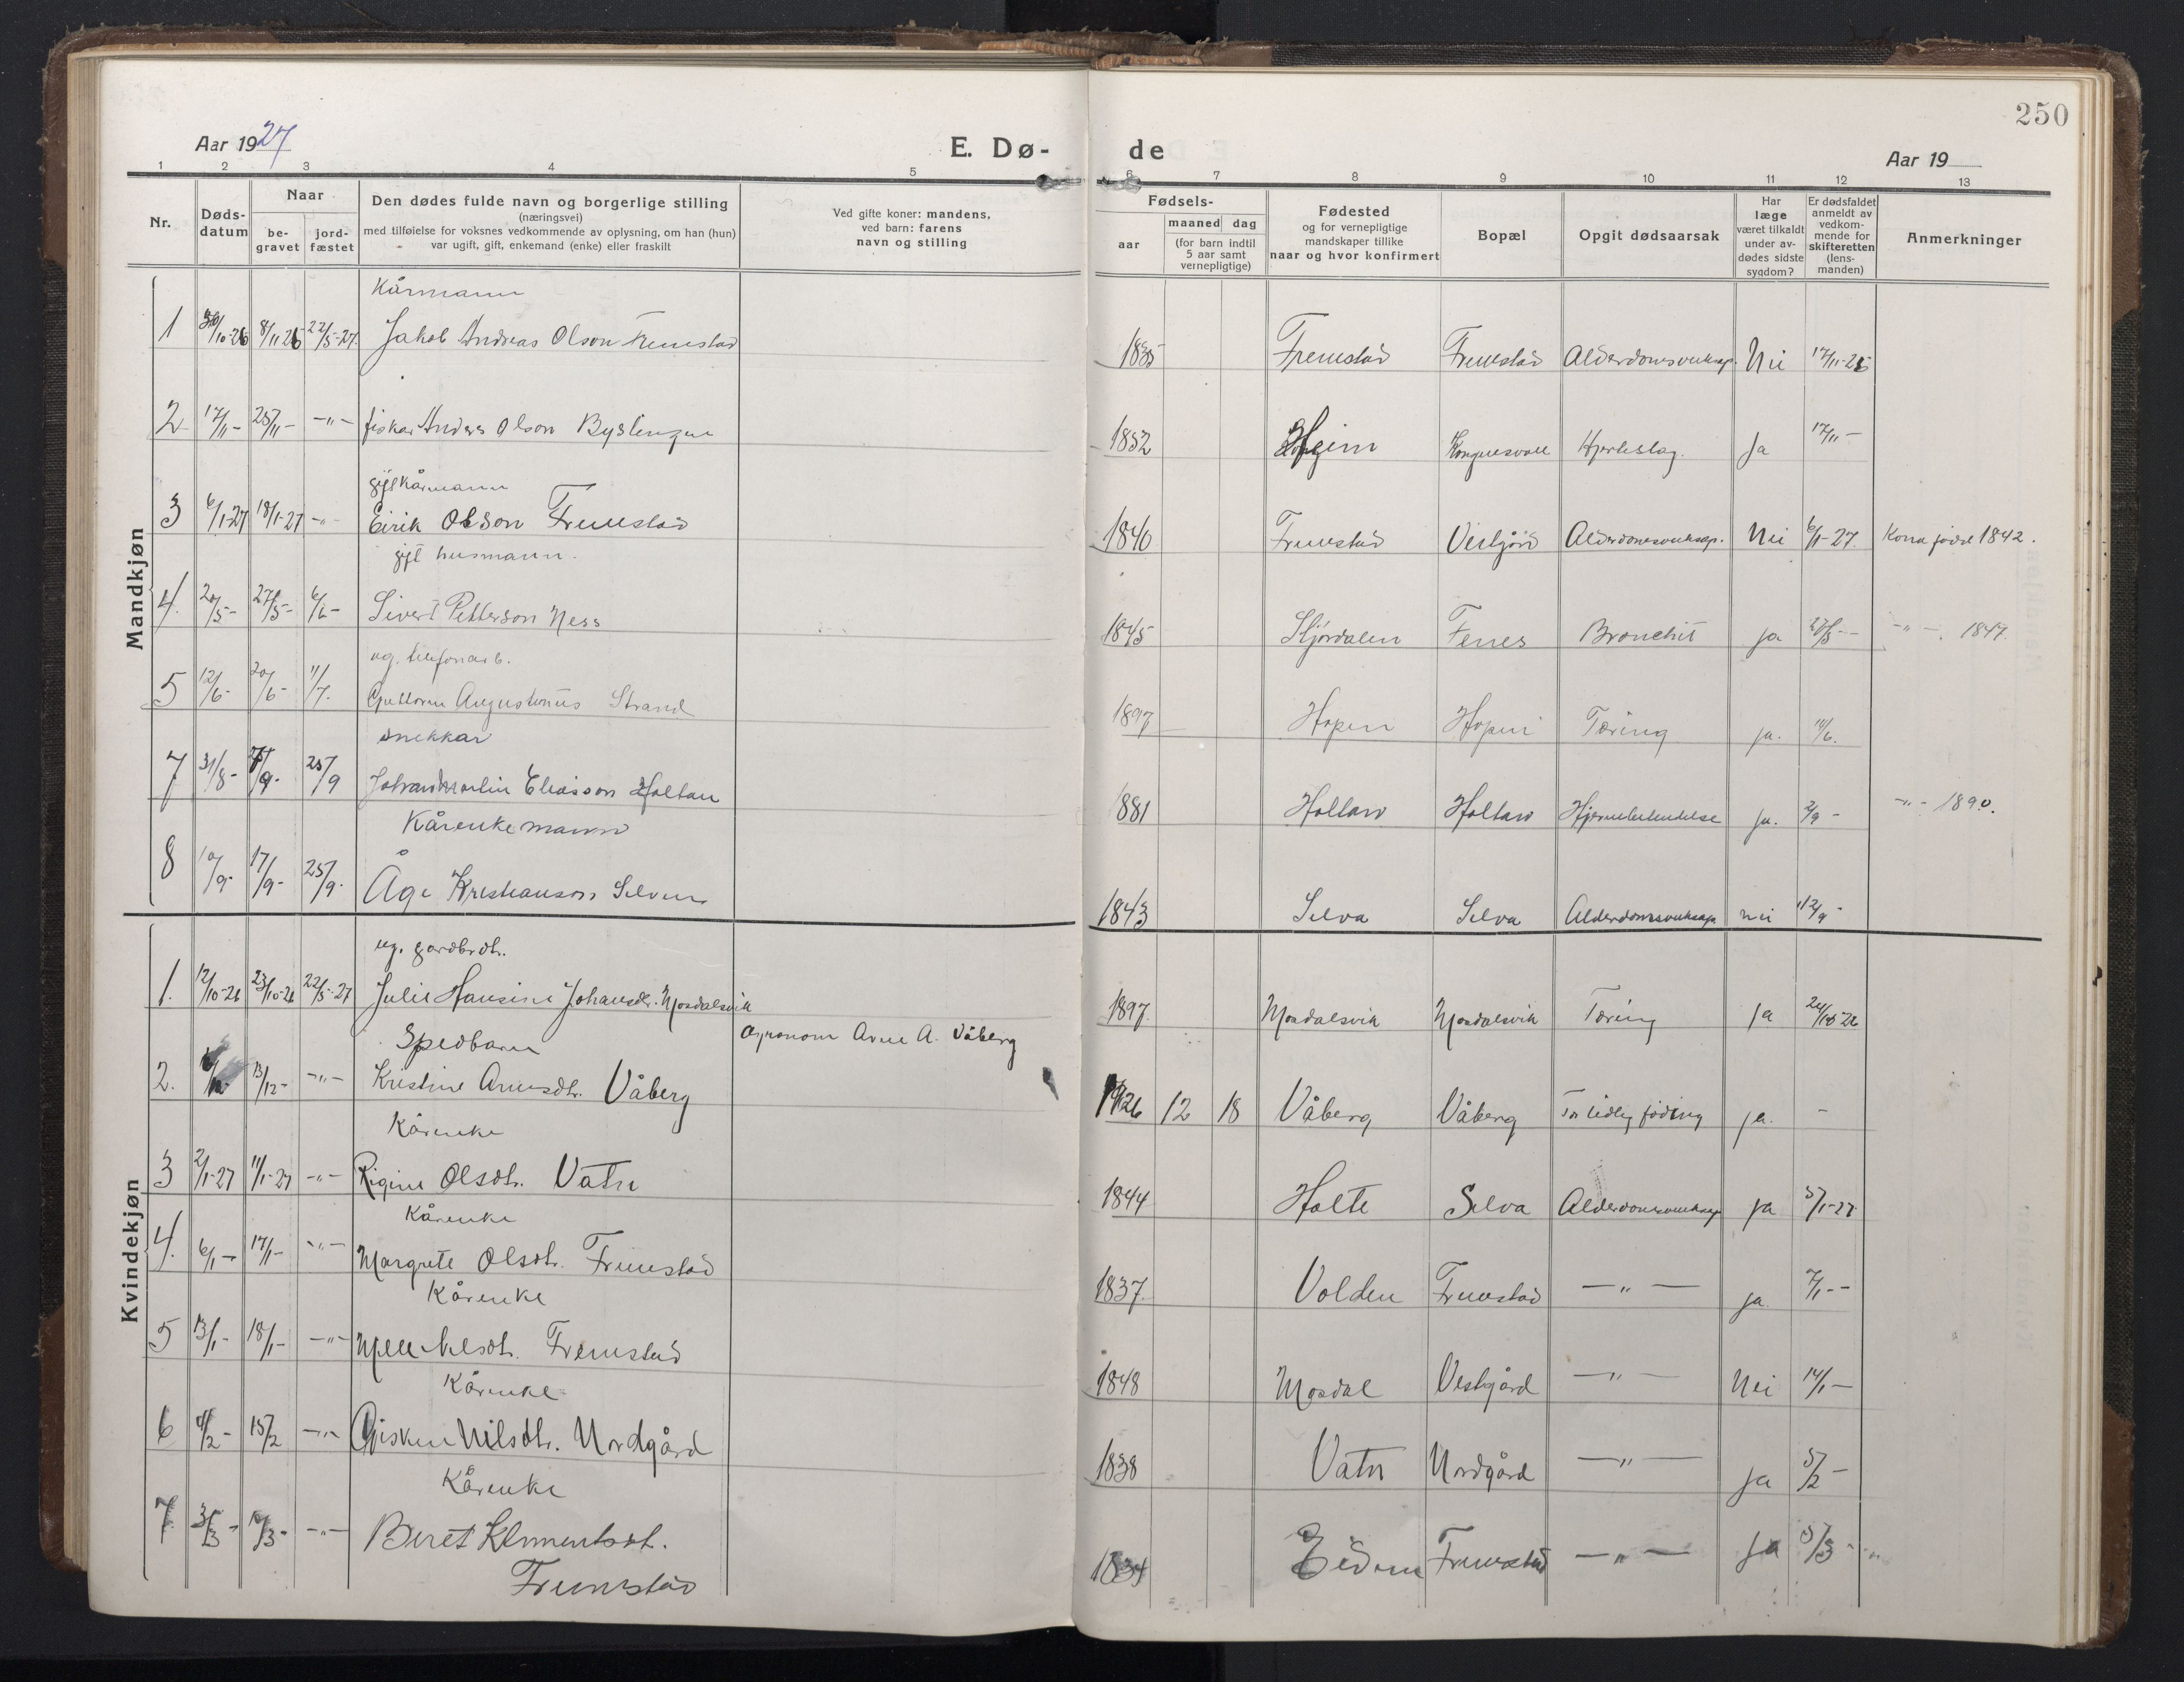 250
Aar 1927 E. Dø- de Aar 19
1 2 3 4 5 6 7 8 9 10 11 12 13
Nr. Døds-datum Naar be-gravet jord-fæstet
Den dødes fulde navn og borgerlige stilling
(næringsvei)
med tilføielse for voksnes vedkommende av oplysning, om han (hun)
var ugift, gift, enkemand (enke) eller fraskilt
Ved gifte koner: mandens,
ved barn: farens
navn og stilling
Fødsels-
aar maaned dag
(for barn indtil
5 aar samt
vernepligtige)
Fødested
og for vernepligtige
mandskaper tillike
naar og hvor konfirmert
Bopæl
Opgit dødsaarsak
Har
læge
været tilkaldt
under av-
dødes sidste
sygdom?
Er dødsfaldet
anmeldt av
vedkom-
mende for
skifteretten
(lens-
manden)
Anmerkninger
Mandkjøn
Kårmann
1 30/10-26 8/11 26 22/5-27. Jakob Andreas Olson Fremstad 1835 Fremstad Fremstad Alderdomsveiksap. Nei 17/11-26
2 17/11- 25/11- -"- fiskar Anders Olson Byslingen 1852 Kongensvoll Hjerteslag. Ja 17/11-
gift kårmann
3 6/1-27 18/1-27 -"- Eirik Olson Fremstad 1840 Fremstad Vestgård Alderdomsveiksap. Nei 6/1-27. Kona född 1842.
gift husmann.
4. 20/5- 27/5- 6/6- Sivert Petterson Ness 1845 Stjórdalen Fenes Bronchit ja -"- 1847.
ug. telefonarb.
5 12/6- 20/6- 11/7. Guttorm Augustinus Strand 1897 Hopen Hopen Tæring ja. 14/6.
snekkar
7 31/8- 7/9- 25/9 Johan Martin Eliasson Holtan 1881 Holtan Holtan Hjernebetendelse ja. 2/9- -"- 1890.
Kårenkemann
8 10/9- 17/9- 25/9. Åge Kristianson Selven 1843 Selva Selva Alderdomsveiksap nei 12/9-
Kvindekjøn
ug. gardbrdt.
1. 12/10-26 23/10-26 22/5-27 Julie Hansine Johansdt. Mosdalsvik 1897. Mosdalsvik Mosdalsvik Tæring Ja 24/10-26
Spedbarn Agronom Arne A. Våberg
2. 13/12- -"- Kristine Arnesdtr. Våberg 1926 12 18 Våberg Våberg For tidleg föding ja. -
Kårenke
3 2/1-27 11/1-27 -"- Rigine Olsdt. Vatn 1844 Holte Selva Alderdomsveiksap ja 5/1-27
Kårenke
4. 6/1- 17/1- -"- Margrete Olsdt. Fremstad 1837. Volden Fremstad -"- ja. 7/1--
Kårenke
5 13/1- 18/1- -"- Mette Nilsdt. Fremstad 1848 Mosdal Vestgård -"- Nei 14/1-
Kårenke
6 4/2- 15/2 -"- Gisken Nilsdtr. Nordgård 1838 Vatn Nordgård -"- Ja 5/2-
Kårenke
7 3/3- 10/3- -"- Beret Klementsdt. 1834 Eidem Fremstad -"- Ja 5/3-
Fremstad